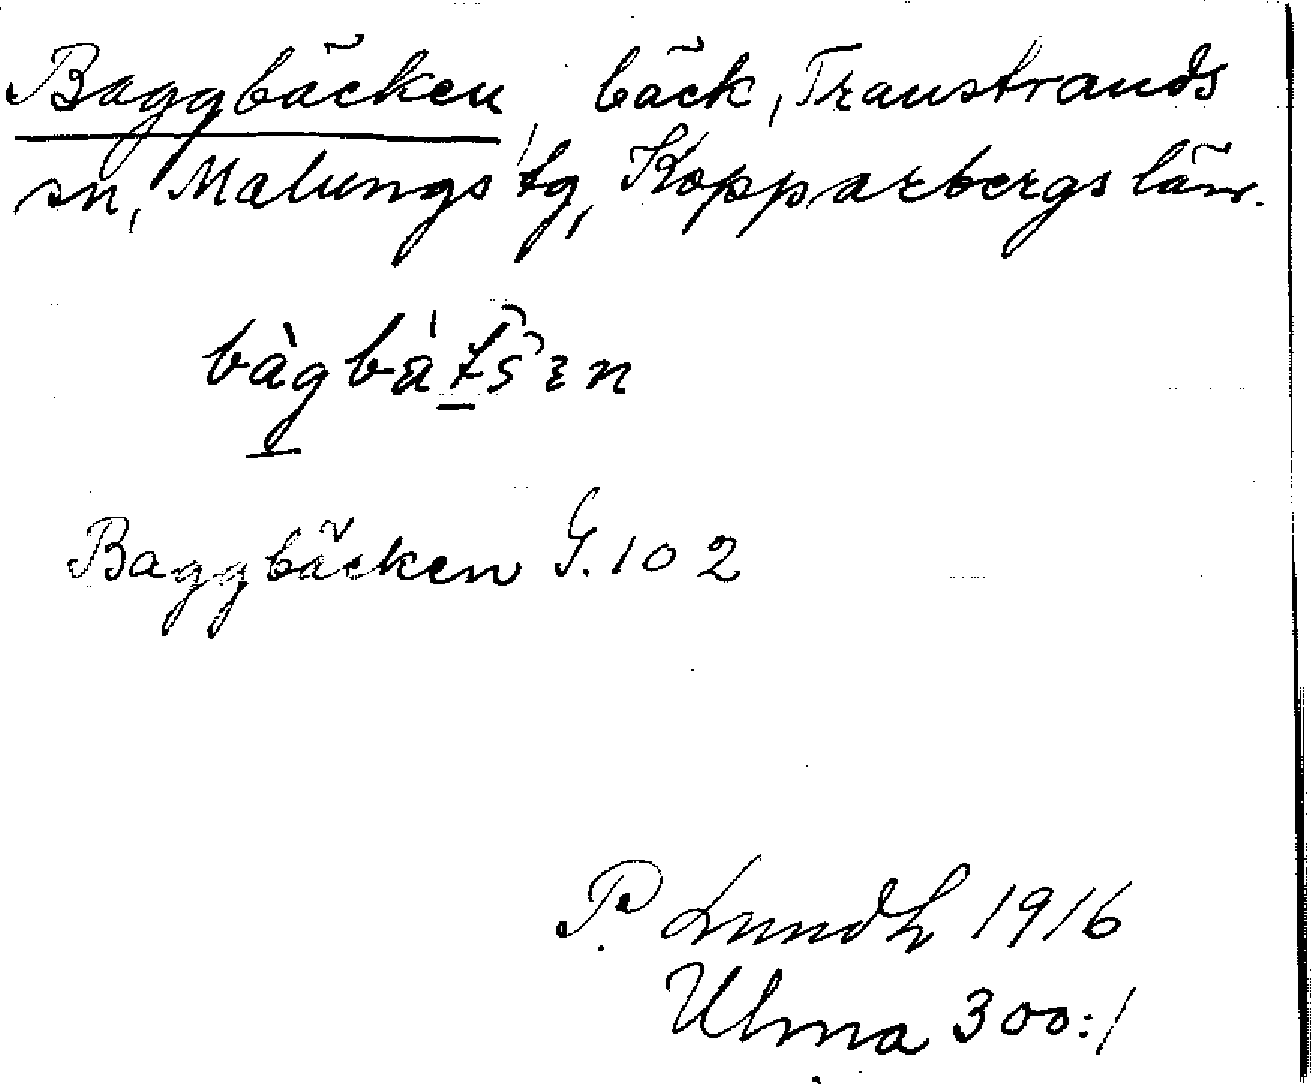 Baggbäcken, bäck, Transtrands
sn, Malungs tg, Kopparbergs län.
bàgbátšɛn
Baggbäcken G. 102
P. Lundh 1916
Ulma 300:1